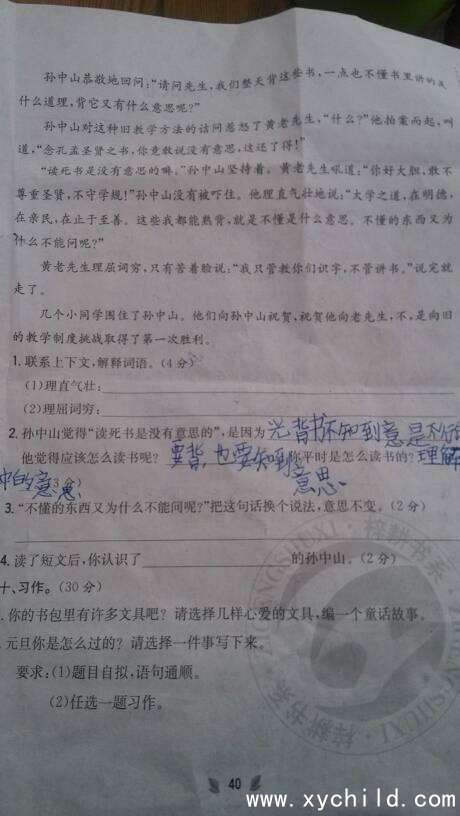 孙中山恭敬地回问:“请问先生,我们整天背这些书,一点也不懂书里讲的
什么道理,背它又有什么意思呢?”
孙中山对这种旧教学方法的诘问惹怒了黄老先生,“什么?”他拍案而起,叫
道,“念孔孟圣贤之书,你竟敢说没有意思,这还了得!”
“读死书是没有意思的嘛。”孙中山坚持着。黄老先生吼道:“你好大胆,敢不
尊重圣贤,不守学规!”孙中山没有被吓住。他理直气壮地说:“大学之道,在明德,
在亲民,在止于至善。这些我都能熟背,就是不懂是什么意思。不懂的东西又为
什么不能问呢?”
黄老先生理屈词穷,只有苦着脸说:“我只管教你们识字,不管讲书。”说完就
走了。
几个小同学围住了孙中山。他们向孙中山祝贺,祝贺他向老先生,不,是向旧
的教学制度挑战取得了第一次胜利。
1. 联系上下文,解释词语。(4分)
(1)理直气壮:
(2)理屈词穷:
2. 孙中山觉得“读死书是没有意思的”,是因为光背书不知到意是不行
他觉得应该怎么读书呢? 要背,也要知到 你平时是怎么读书的? 理解
中的意思 3分) 意思
3. “不懂的东西又为什么不能问呢?”把这句话换个说法,意思不变。(2分)
4. 读了短文后,你认识了 的孙中山。(2分)
十、习作。(30分)
. 你的书包里有许多文具吧?请选择几样心爱的文具,编一个童话故事。
. 元旦你是怎么过的?请选择一件事写下来。
要求:(1)题目自拟,语句通顺。
(2)任选一题习作。
梓耕书系
ZIGENGSHUXI
40
www.xychild.com